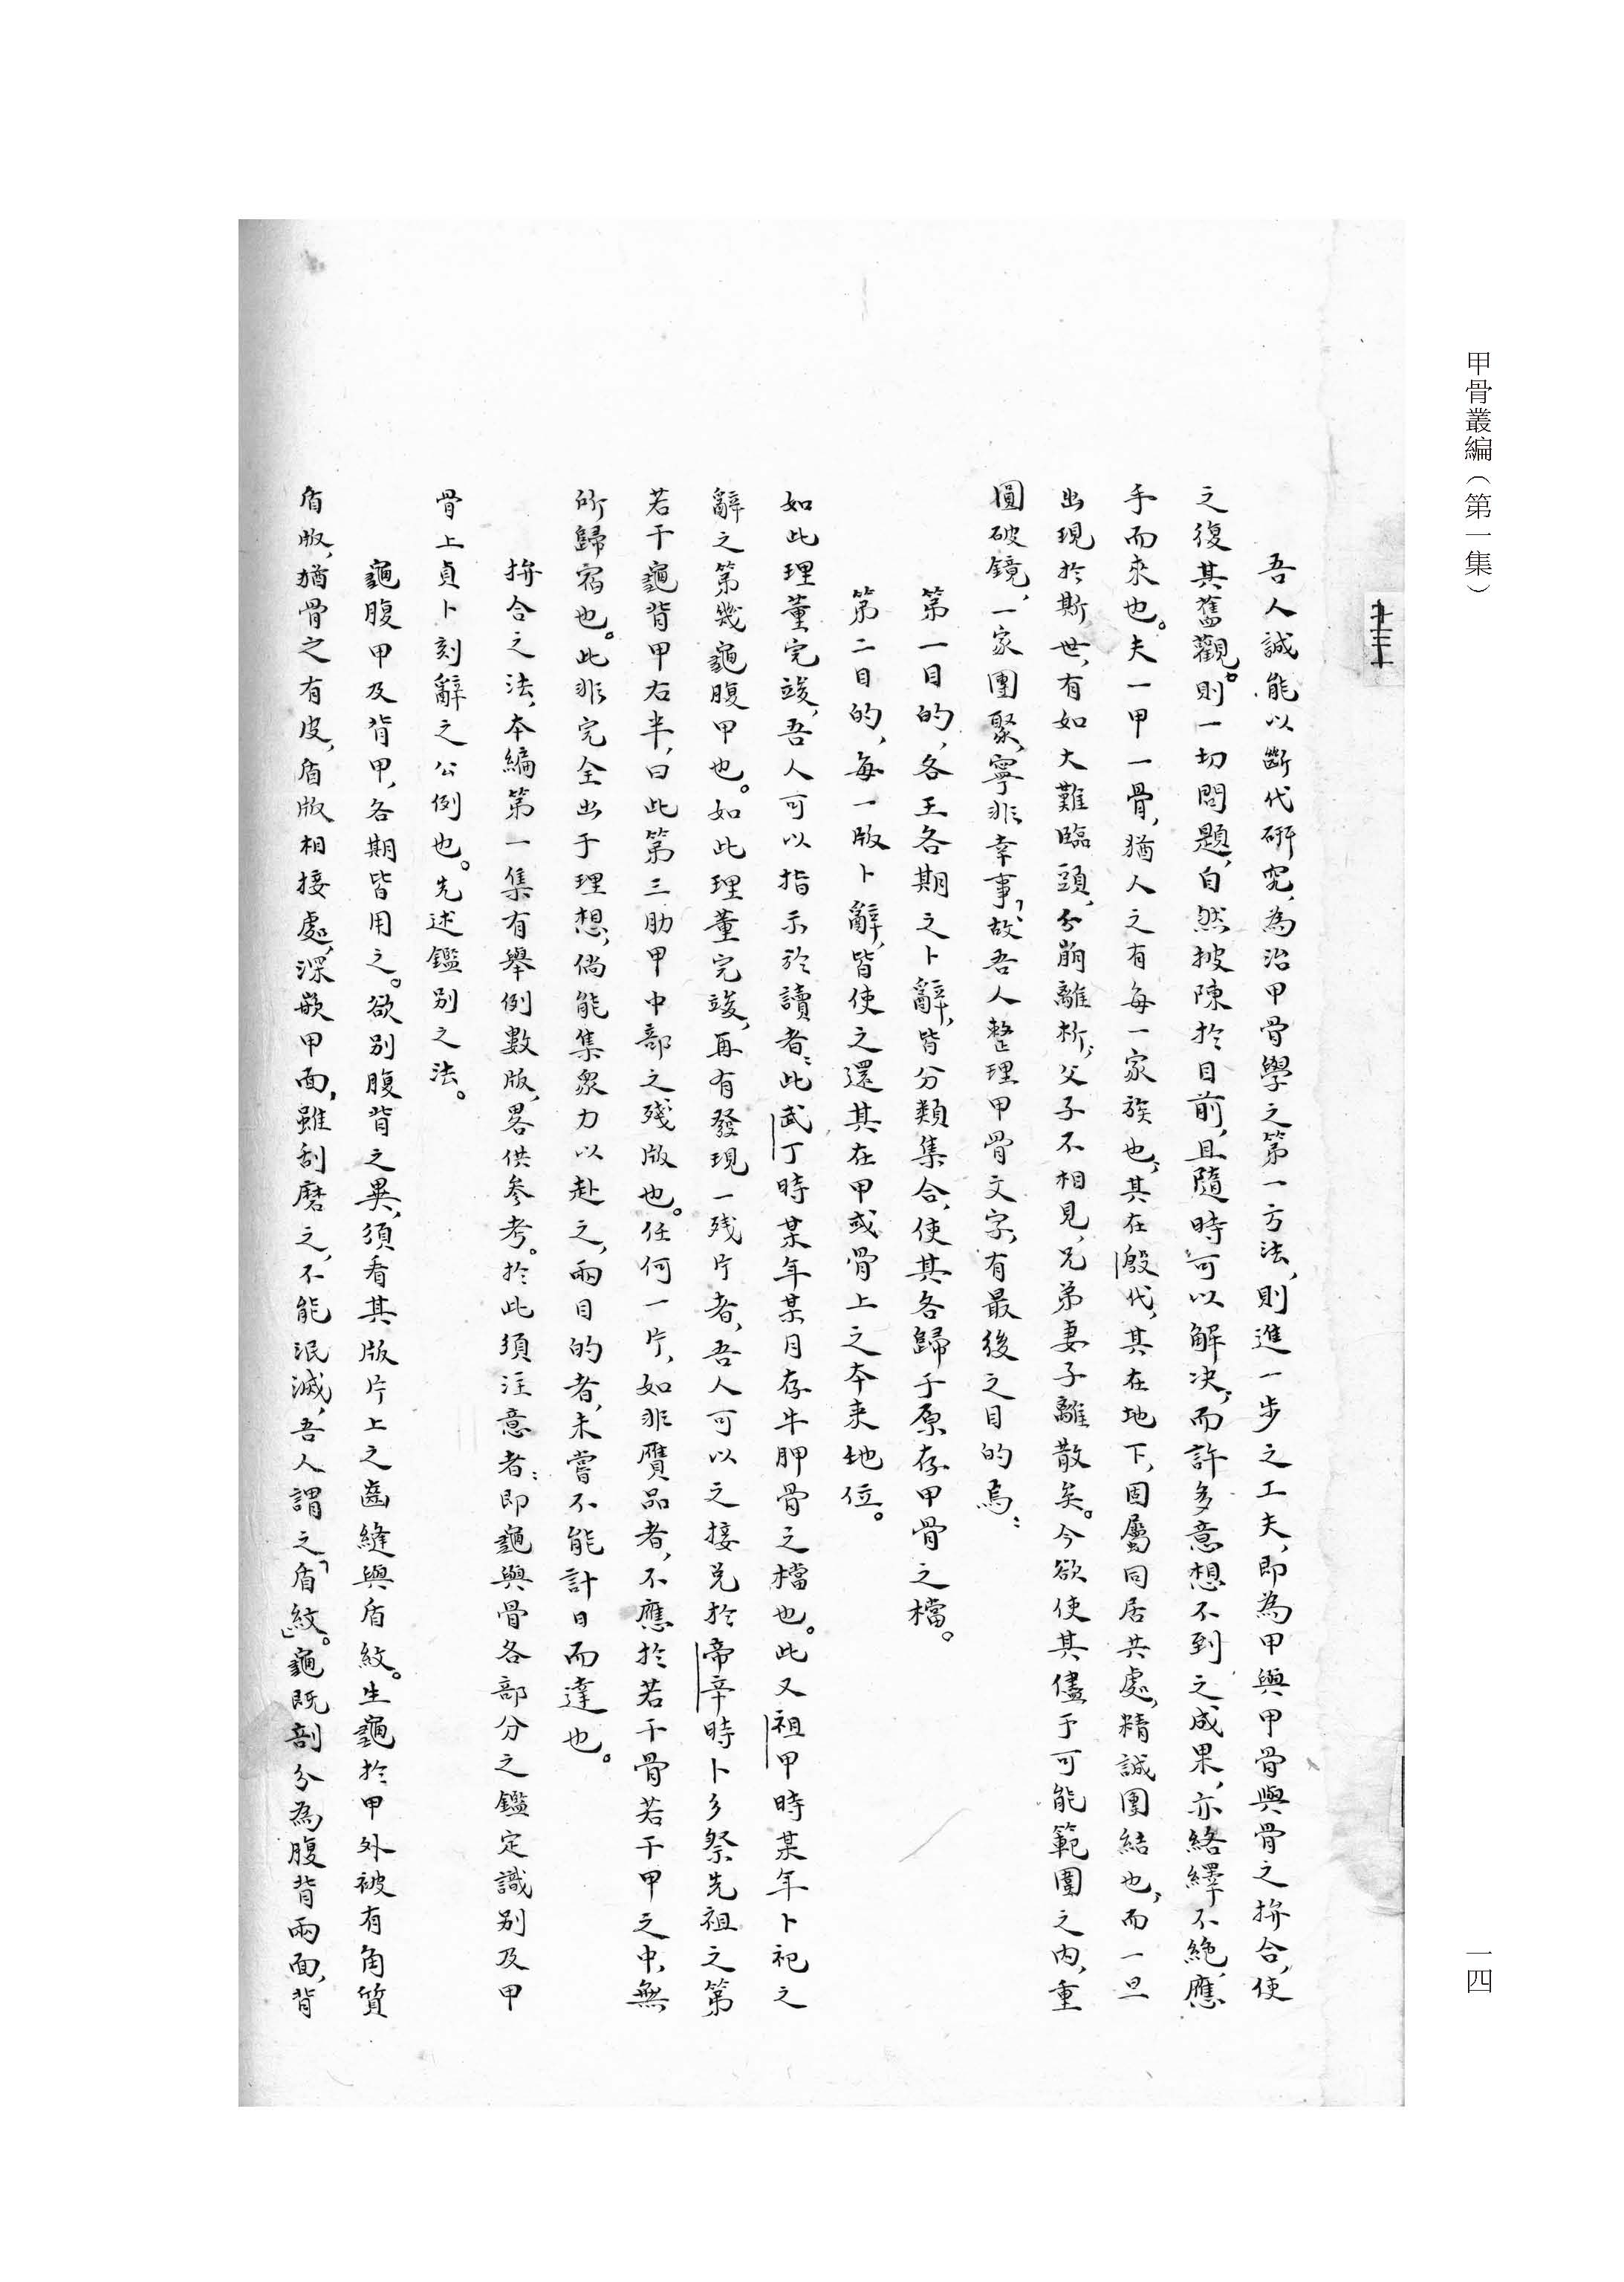 甲骨叢編（第一集）
一四
吾人誠能以斷代研究，為治甲骨學之第一方法，則進一步之工夫，即為甲與甲骨與骨之拚合，使
之復其舊觀。則一切問題，自然披陳於目前，且隨時可以解决，而許多意想不到之成果，亦絡繹不絶，應
手而來也。夫一甲一骨，猶人之有每一家族也，其在殷代，其在地下，固屬同居共處，精誠團結也，而一旦
出現於斯世，有如大難臨頭，分崩離析，父子不相見，兄弟妻子離散矣。今欲使其儘于可能範圍之內，重
圓破鏡，一家團聚，寧非幸事，故吾人整理甲骨文字，有最後之目的焉：
第一目的，各王各期之卜辭，皆分類集合，使其各歸于原存甲骨之檔。
第二目的，每一版卜辭，皆使之還其在甲或骨上之本来地位。
如此理董完竣，吾人可以指示於讀者：此武丁時某年某月存牛胛骨之檔也。此又祖甲時某年卜祀之
辭之第幾龜腹甲也。如此理董完竣，再有發現一残片者，吾人可以之接兑於帝辛時卜彡祭先祖之第
若干龜背甲右半，曰此第三肋甲中部之殘版也。任何一片，如非贋品者，不應於若干骨若干甲之中，無
所歸宿也。此非完全出于理想，倘能集衆力以赴之，兩目的者，未嘗不能計日而達也。
拚合之法，本編第一集有舉例數版，畧供參考。於此須注意者：即龜與骨各部分之鑑定識别及甲
骨上貞卜刻辭之公例也。先述鑑别之法。
龜腹甲及背甲，各期皆用之。欲别腹背之異，須看其版片上之齒縫與盾紋。生龜於甲外被有角質
盾版，猶骨之有皮，盾版相接處，深嵌甲面，雖刮磨之，不能泯滅，吾人謂之「盾紋」。龜既剖分為腹背兩面，背